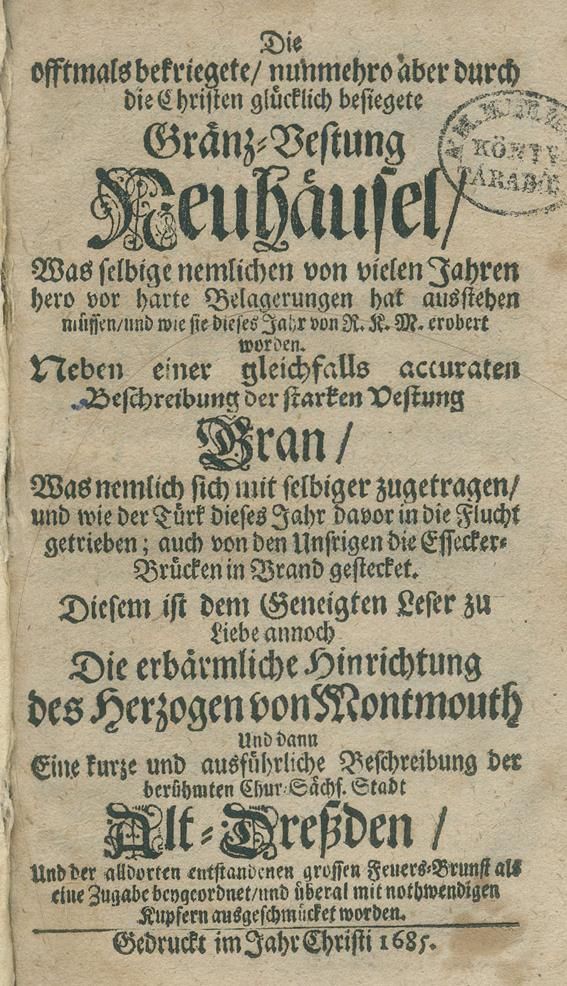 Die
offtmals bekriegete/ nunmehro aber durch
die Christen glücklich besiegete
Gränz-Vestung
Neuhäusel/
Was selbige nemlichen von vielen Jahren
hero vor harte Belagerungen hat ausstehen
müssen/und wie sie dieses Jahr von R. K. M. erobert
worden.
Neben einer gleichfalls accuraten
Beschreibung der starken Vestung
Gran/
Was nemlich sich mit selbiger zugetragen/
und wie der Türk dieses Jahr davor in die Flucht
getrieben; auch von den Unsrigen die Essecker-
Brücken in Brand gestecket.
Diesem ist dem Geneigten Leser zu
Liebe annoch
Die erbärmliche Hinrichtung
des Herzogen von Montmouth
Und dann
Eine kurze und ausführliche Beschreibung der
berühmten Chur-Sächs. Stadt
Alt-Dreßden/
Und der alldorten entstandenen grossen Feuers-Brunst als
eine Zugabe beygeordnet/und überal mit nothwendigen
Kupfern ausgeschmücket worden.
Gedruckt im Jahr Christi 1685.
KÖNYV
TÁRABÓL